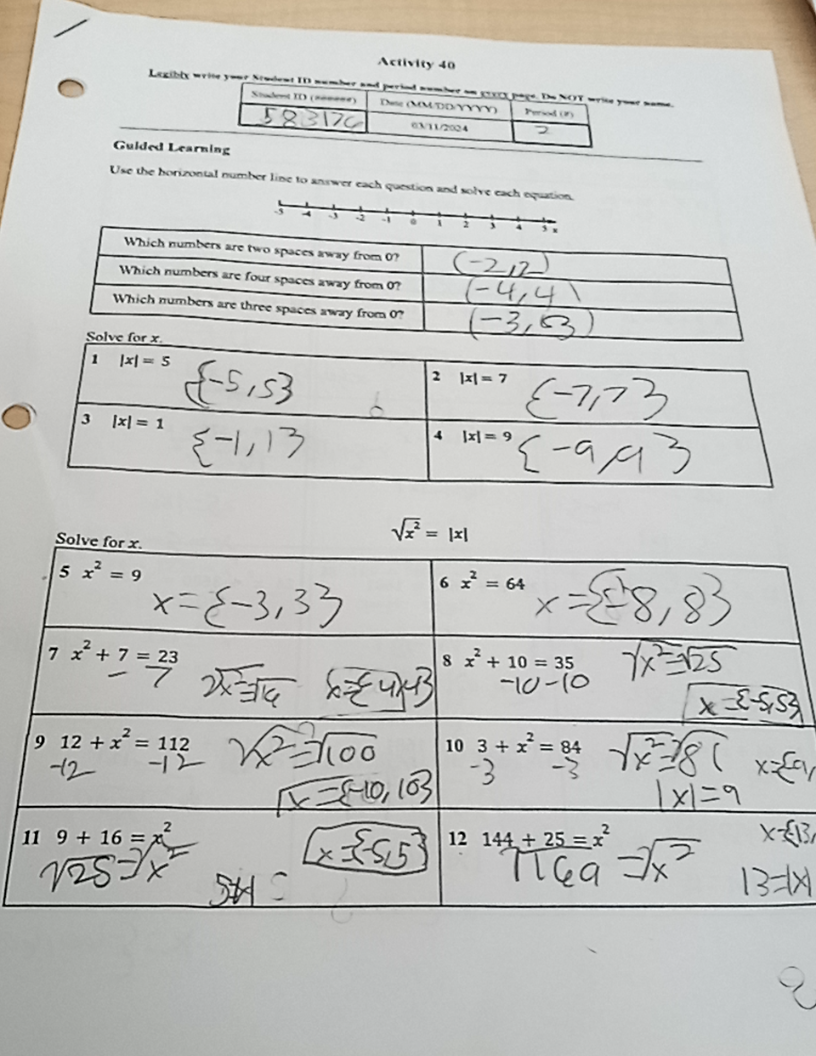 Activity 40
Legibly write your Student ID number and period number on every page. Do NOT write your name.
Student ID (######) Date (MM/DD/YYYY) Period (#)
583176 03/11/2024 2
Guided Learning
Use the horizontal number line to answer each question and solve each equation.
-5 -4 -3 -2 -1 0 1 2 3 4 5 x
Which numbers are two spaces away from 0? (-2,2)
Which numbers are four spaces away from 0? (-4,4)
Which numbers are three spaces away from 0? (-3,3)
Solve for x.
1 |x| = 5 {-5,5}
2 |x| = 7 {-7,7}
3 |x| = 1 {-1,1}
4 |x| = 9 {-9,9}
√x² = |x|
Solve for x.
5 x² = 9 x={-3,3}
6 x² = 64 x={-8,8}
7 x² + 7 = 23
-7 √x²=√16 x={-4,4}
8 x² + 10 = 35 √x²=√25
-10 -10
x={-5,5}
9 12 + x² = 112 √x²=√100
-12 -12
x={-10,10}
10 3 + x² = 84 √x²=√81
-3 -3
|x|=9
11 9 + 16 = x² x={-5,5}
√25=√x²
12 144 + 25 = x²
√169=√x² 13=|x|